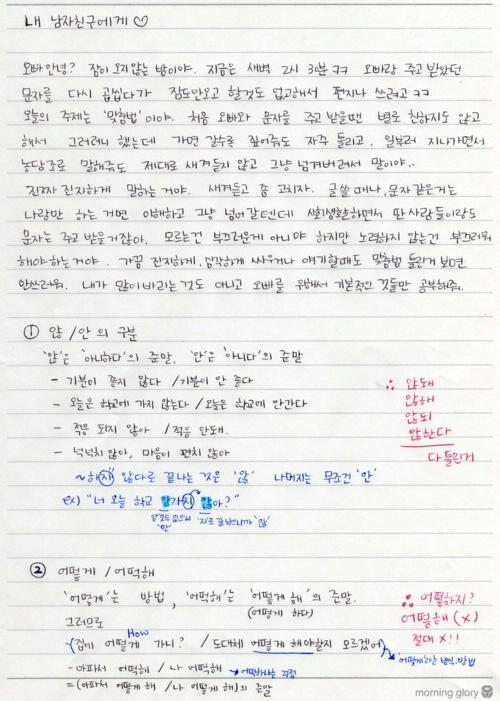 내 남자친구에게 ♡
오빠 안녕? 잠이 오지 않는 밤이야. 지금은 새벽 2시 30분 ㅋㅋ 오빠랑 주고 받았던
문자를 다시 곱씹다가 잠도안오고 할것도 없고해서 편지나 쓰려고 ㅋㅋ
오늘의 주제는 '맞춤법'이야. 처음 오빠와 문자를 주고 받을땐 별로 친하지도 않고
해서 그러려니 했는데 가면 갈수록 짚어줘도 자주 틀리고, 일부러 지나가면서
농담조로 말해줘도 제대로 새겨듣지 않고 그냥 넘겨버려서 말이야..
진짜 진지하게 말하는 거야. 새겨듣고 좀 고치자. 글쓸 때나, 문자 같은거는
나랑만 하는 거면 이해하고 그냥 넘어 갈텐데 사회생활하면서 딴 사람들이랑도
문자는 주고 받을거잖아. 모르는건 부끄러운게 아니야 하지만 노력하지 않는건 부끄러워
해야하는거야. 가끔 진지하게, 심각하게 싸우거나 얘기할때도 맞춤법 틀린거 보면
안쓰러워. 내가 많이 바라는것도 아니고 오빠를 위해서 기본적인 것들만 공부해줘.
① 않 / 안 의 구분
'않'은 '아니하다'의 준말, '안'은 '아니다'의 준말
- 기분이 좋지 않다 / 기분이 안 좋다
- 오늘은 학교에 가지 않는다 / 오늘은 학교에 안간다
- 적응 되지 않아 / 적응 안돼.
- 넉넉치 않아, 마음이 편치 않아
~하지 않다로 끝나는 것은 '않' 나머지는 무조건 '안'
ex) "너 오늘 학교 안가지 않아?"
'안'
'지'로 끝났으니까 '않'
∴ 않돼
않해
않되
않한다
다 틀린거
② 어떻게 / 어떡해
'어떻게'는 방법, '어떡해'는 '어떻게 해'의 준말.
(어떻게 하다)
그러므로
How
(집에 어떻게 가니? / 도대체 어떻게 해야할지 모르겠어)
'어떻게'라는 방식, 방법
- 아파서 어떡해 / 나 어떡해
= (아파서 어떻게 해 / 나 어떻게 해)의 준말
∴ 어떻하지?
어떻해 (X)
절대 X!!
morning glory